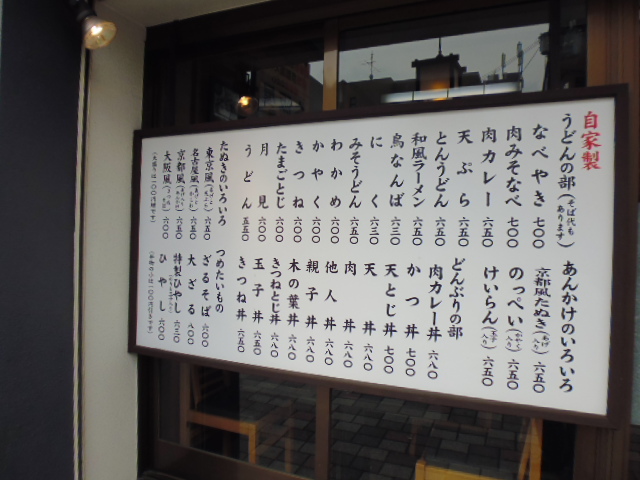 自家製
うどんの部(そば代もあります)
なべやき 七〇〇
肉みそなべ 七〇〇
肉カレー 六五〇
天ぷら 六五〇
とんうどん 六五〇
和風ラーメン 六五〇
鳥なんば 六三〇
にく 六三〇
みそうどん 六五〇
わかめ 六〇〇
かやく 六〇〇
きつね 六〇〇
たまごとじ 六〇〇
月見 六〇〇
うどん 五五〇
たぬきのいろいろ
東京風 六五〇
名古屋風 六五〇
京都風 六五〇
大阪風 六〇〇
あんかけのいろいろ
京都風たぬき 六五〇
のっぺい 六五〇
けいらん(玉子入り) 六五〇
どんぶりの部
肉カレー丼 六八〇
かつ丼 七〇〇
天とじ丼 七〇〇
天丼 六八〇
肉丼 六八〇
他人丼 六八〇
親子丼 六八〇
木の葉丼 六八〇
きつねとじ丼 六八〇
玉子丼 六五〇
きつね丼 六五〇
つめたいもの
ざるそば 六〇〇
大ざる 八〇〇
特製ひやし 六三〇
ひやし 六〇〇